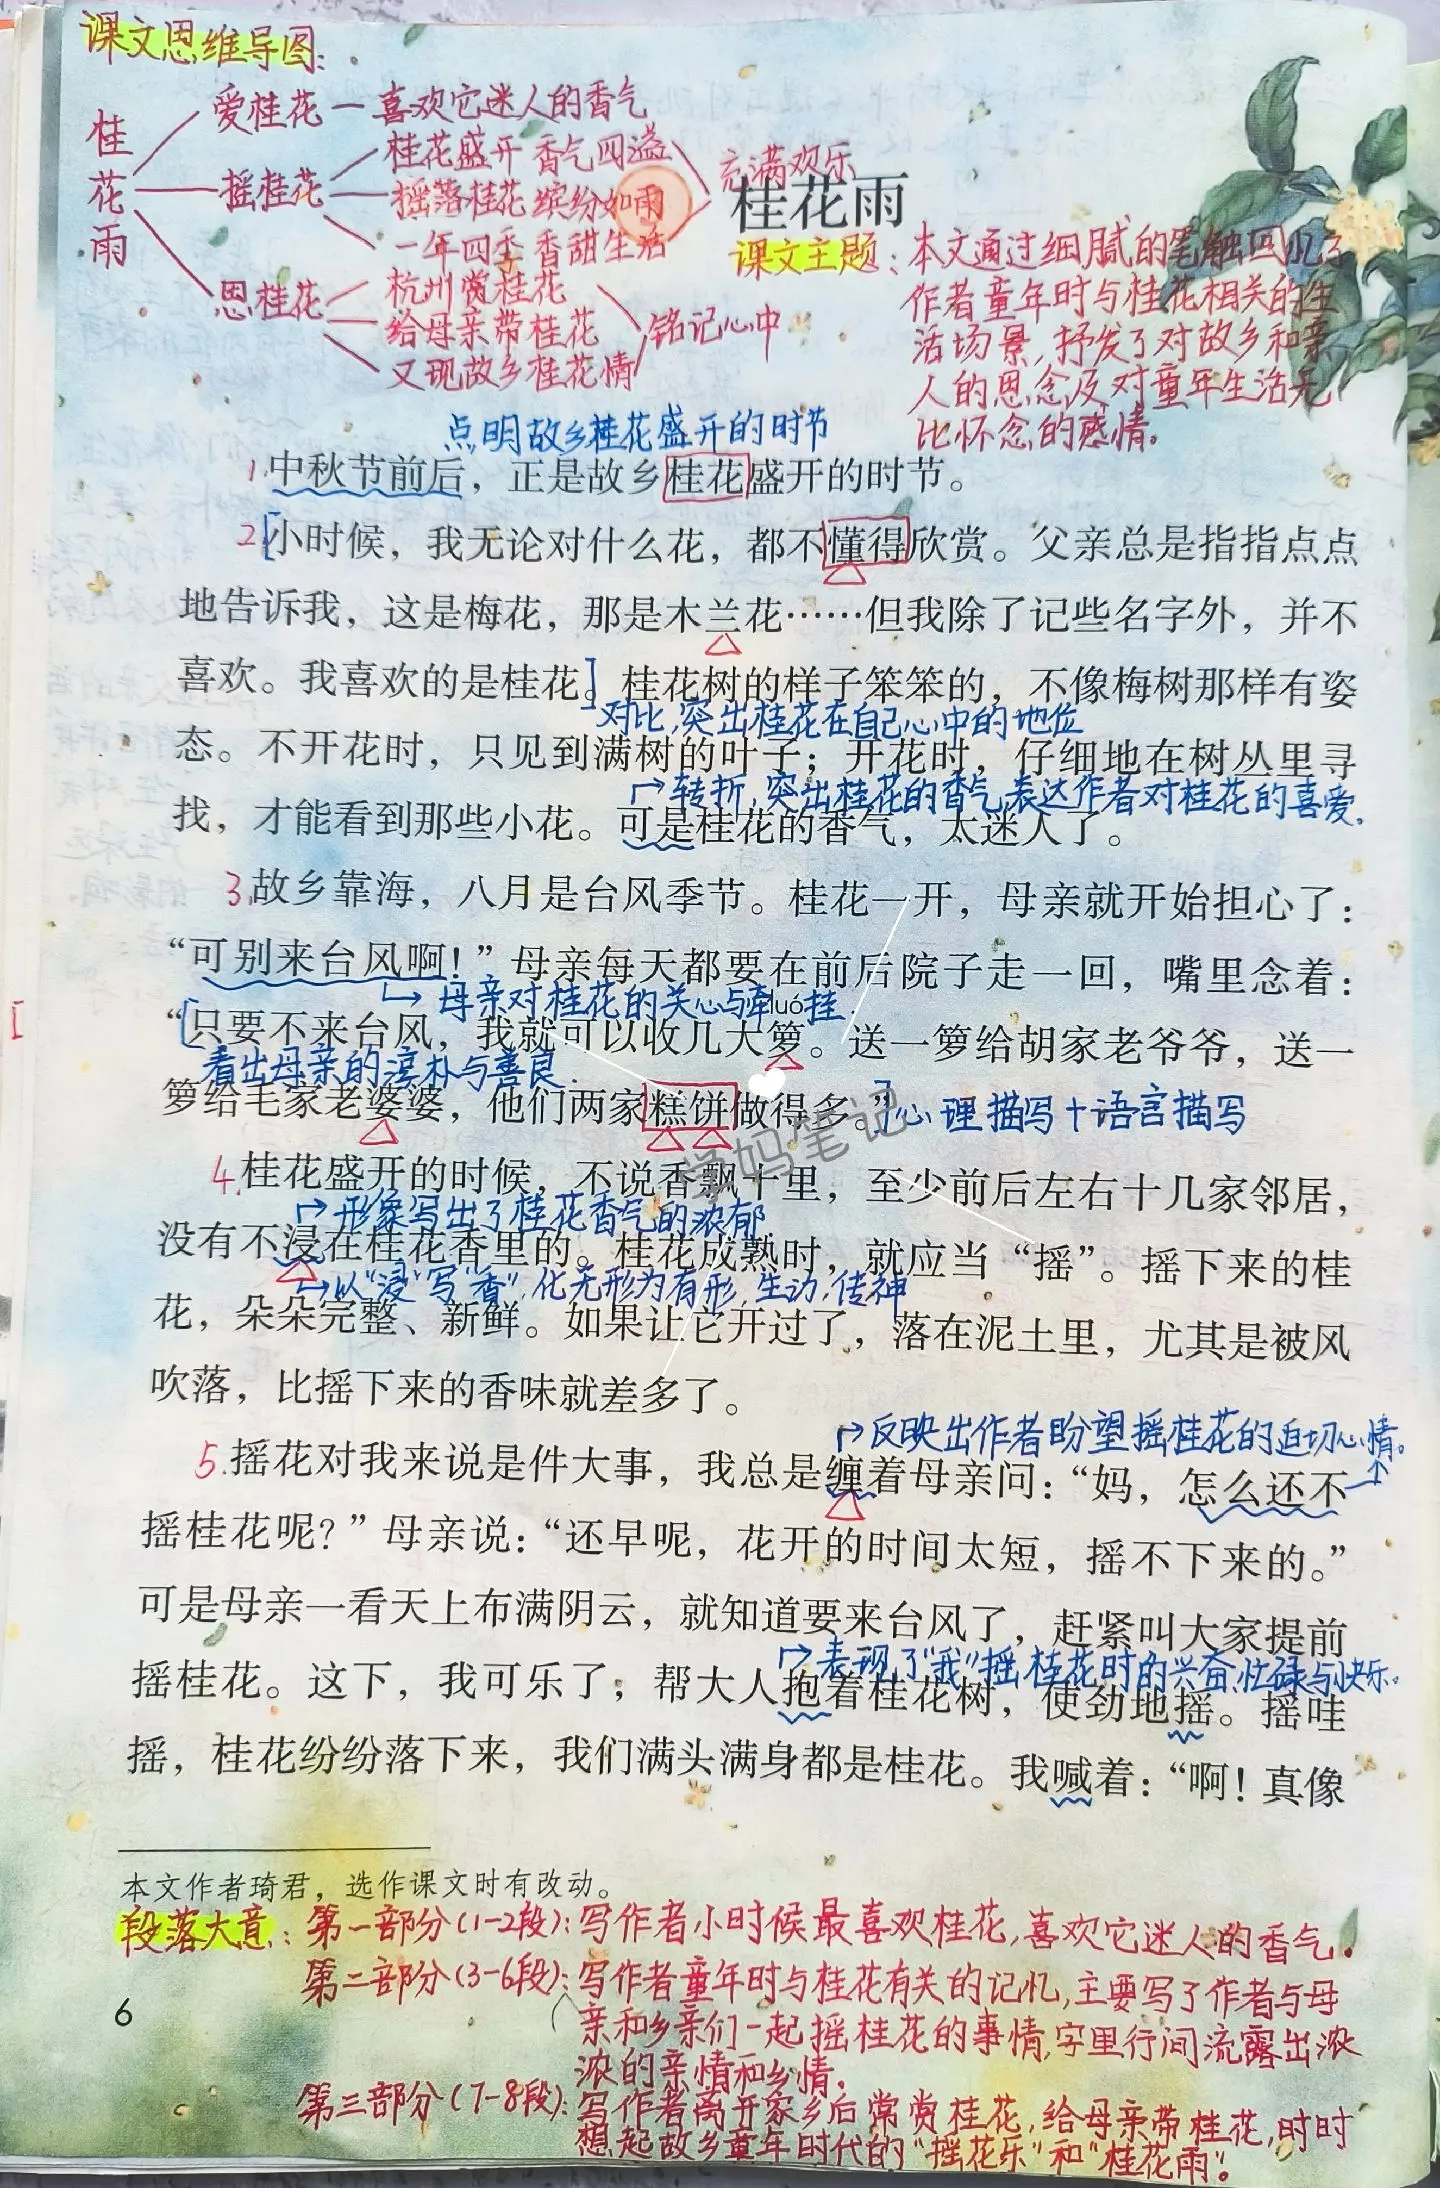 课文思维导图：
桂花雨
爱桂花 — 喜欢它迷人的香气
摇桂花
桂花盛开 香气四溢
摇落桂花 缤纷如雨
一年四季 香甜生活
充满欢乐
思桂花
杭州赏桂花
给母亲带桂花
又现故乡桂花情
铭记心中
桂花雨
课文主题：本文通过细腻的笔触回忆了
作者童年时与桂花相关的生
活场景，抒发了对故乡和亲
人的思念及对童年生活无
比怀念的感情。
点明故乡桂花盛开的时节
1.中秋节前后，正是故乡桂花盛开的时节。
2.[小时候，我无论对什么花，都不懂得欣赏。父亲总是指指点点
地告诉我，这是梅花，那是木兰花……但我除了记些名字外，并不
喜欢。我喜欢的是桂花。]桂花树的样子笨笨的，不像梅树那样有姿
对比，突出桂花在自己心中的地位
态。不开花时，只见到满树的叶子；开花时，仔细地在树丛里寻
转折，突出桂花的香气，表达作者对桂花的喜爱。
找，才能看到那些小花。可是桂花的香气，太迷人了。
3.故乡靠海，八月是台风季节。桂花一开，母亲就开始担心了：
“可别来台风啊！”母亲每天都要在前后院子走一回，嘴里念着：
母亲对桂花的关心与牵挂.
luó
“[只要不来台风，我就可以收几大箩。送一箩给胡家老爷爷，送一
看出母亲的淳朴与善良.
箩给毛家老婆婆，他们两家糕饼做得多。”]心理描写+语言描写
学妈笔记
4.桂花盛开的时候，不说香飘十里，至少前后左右十几家邻居，
形象写出了桂花香气的浓郁.
没有不浸在桂花香里的。桂花成熟时，就应当“摇”。摇下来的桂
以“浸”写“香”，化无形为有形，生动，传神
花，朵朵完整、新鲜。如果让它开过了，落在泥土里，尤其是被风
吹落，比摇下来的香味就差多了。
反映出作者盼望摇桂花的迫切心情。
5.摇花对我来说是件大事，我总是缠着母亲问：“妈，怎么还不
摇桂花呢？”母亲说：“还早呢，花开的时间太短，摇不下来的。”
可是母亲一看天上布满阴云，就知道要来台风了，赶紧叫大家提前
表现了“我”摇桂花时的兴奋、忙碌与快乐。
摇桂花。这下，我可乐了，帮大人抱着桂花树，使劲地摇。摇哇
摇，桂花纷纷落下来，我们满头满身都是桂花。我喊着：“啊！真像
本文作者琦君，选作课文时有改动。
段落大意：第一部分(1-2段)：写作者小时候最喜欢桂花，喜欢它迷人的香气.
第二部分(3-6段)：写作者童年时与桂花有关的记忆，主要写了作者与母
亲和乡亲们一起摇桂花的事情，字里行间流露出浓
浓的亲情和乡情。
第三部分(7-8段)：写作者离开家乡后常赏桂花，给母亲带桂花，时时
想起故乡童年时代的“摇花乐”和“桂花雨”。
6